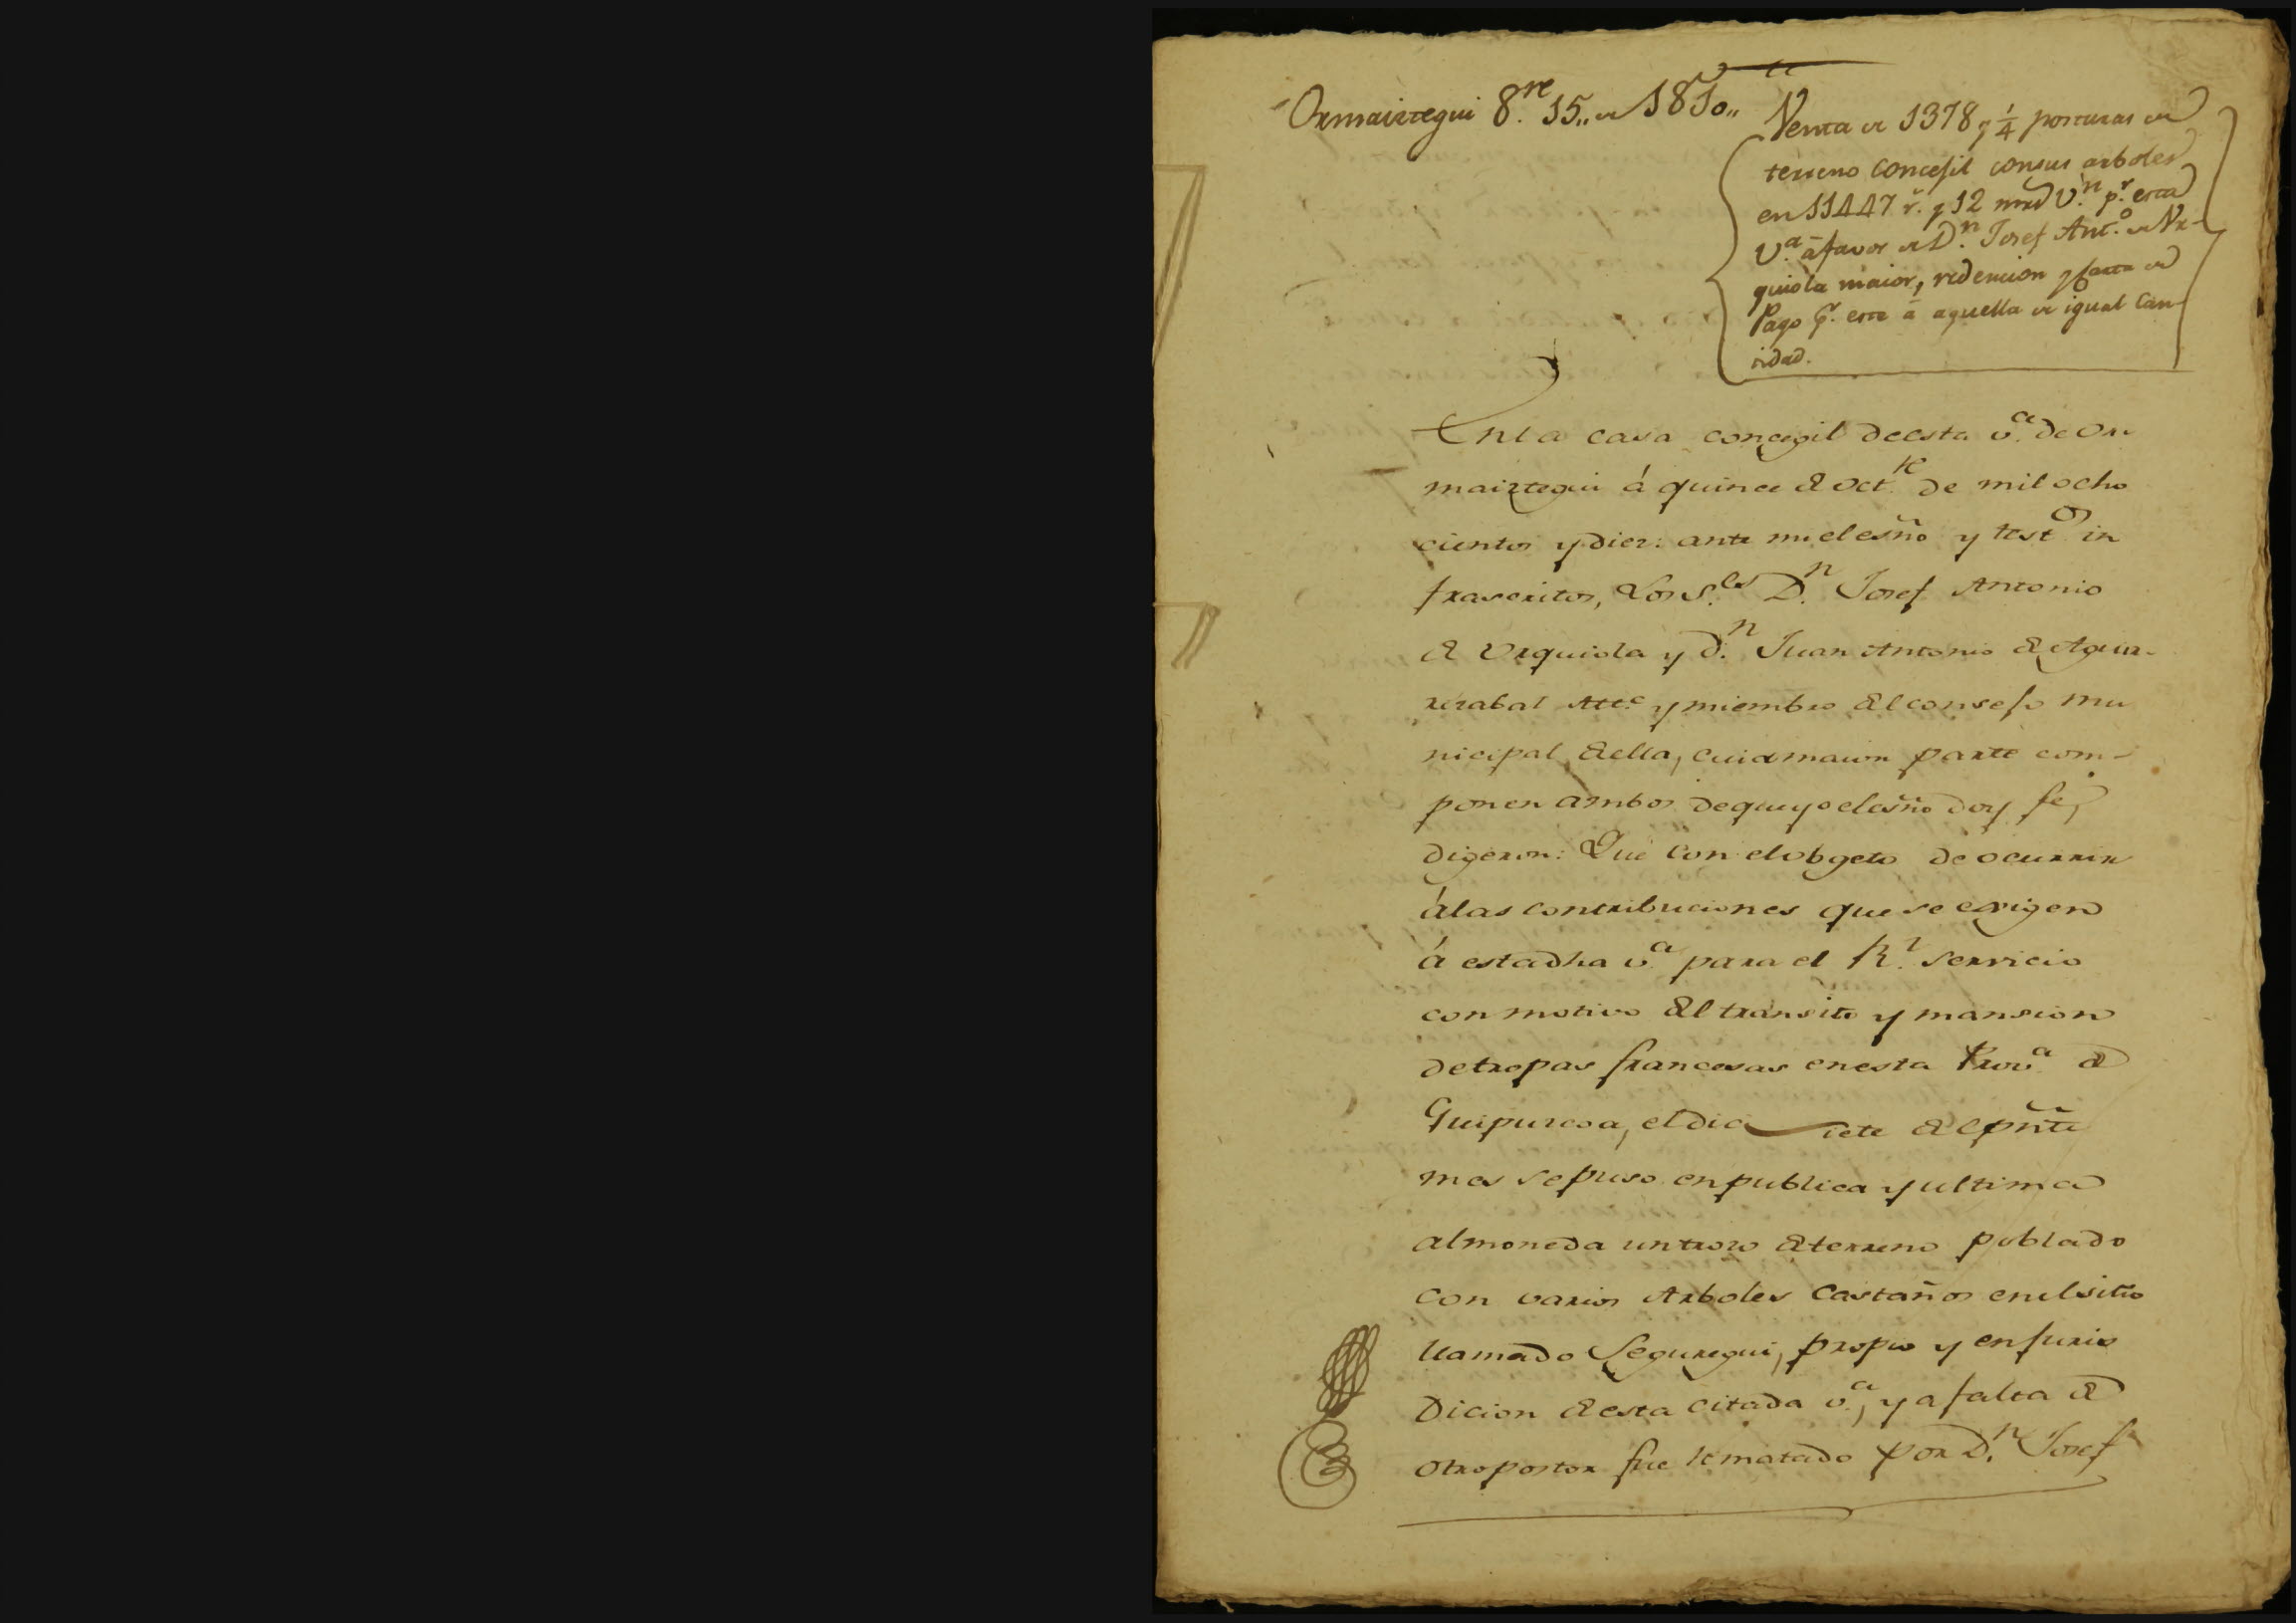 Ormaiztegui 8.re 15,, de 1810,,
Venta de 1378 y 1/4 posturas de
terreno concejil consus arboles
en 11447 r.s y 12 mrs V.n p.r esta
V.a á favor de D.n Josef Ant.o de Ur-
quiola maior, redencion y carta de
Pago q.e este á aquella de igual can-
tidad.
Enla casa concegil deesta v.a de Or-
maiztegui á quince de oct.re de mil ocho
cientos y diez: ante mi el esño y test.os in
frascritos, Los S.res D.n Josef Antonio
de Urquiola y D.n Juan Antonio de Aguir-
rezabal Alc.e y miembro del consejo mu
nicipal de ella, cuia maior parte com-
ponen ambos deque yo el esño doy fe,
digeron: Que con el obgeto de ocurrir
álas contribuciones que se exigen
á esta dha v.a para el R.l servicio
con motivo del transito y mansion
de tropas francesas enesta Prov.a de
Guipuzcoa, el dia siete del pñte
mes se puso en publica y ultima
almoneda un trozo de terreno poblado
con varios Arboles Castaños enel sitio
llamado Seguregui, propio y en juris
dicion de esta citada v.a, y a falta de
otro postor fue rematado por D.n Josef